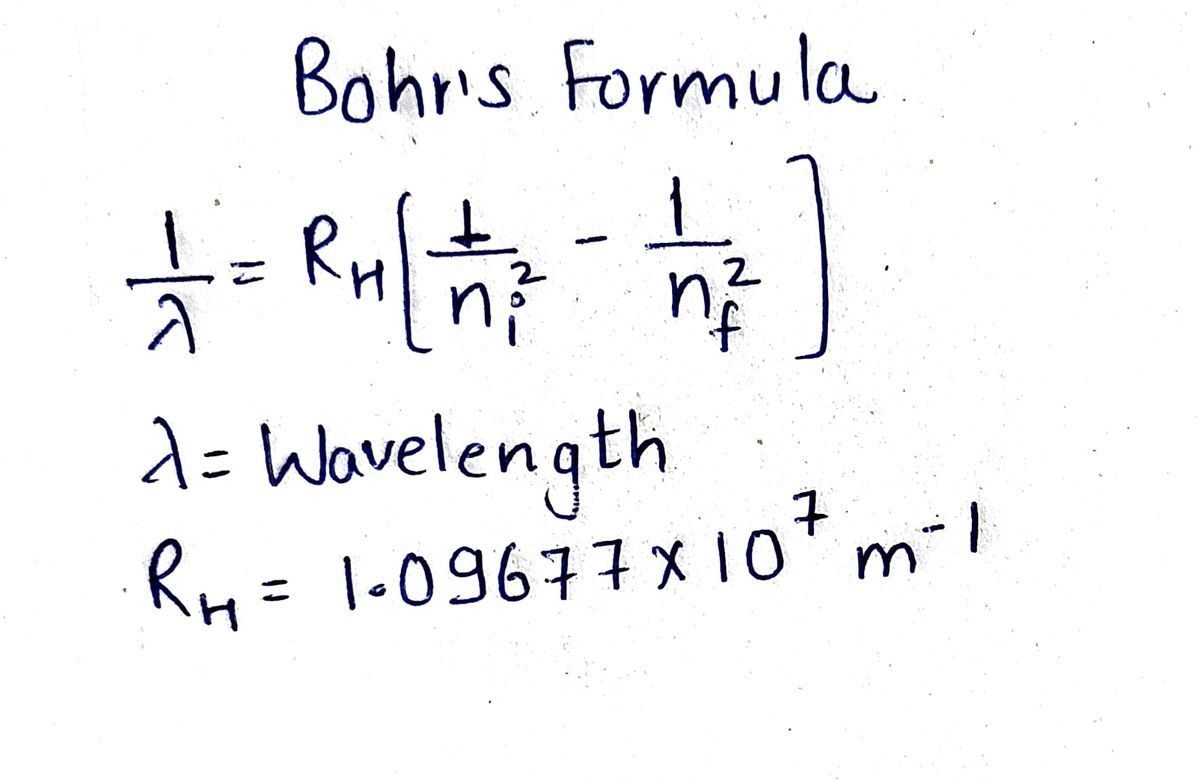 Bohr's Formula
1/λ = R_H [ 1/n_i^2 - 1/n_f^2 ]
λ = Wavelength
R_H = 1.09677 × 10^7 m^-1